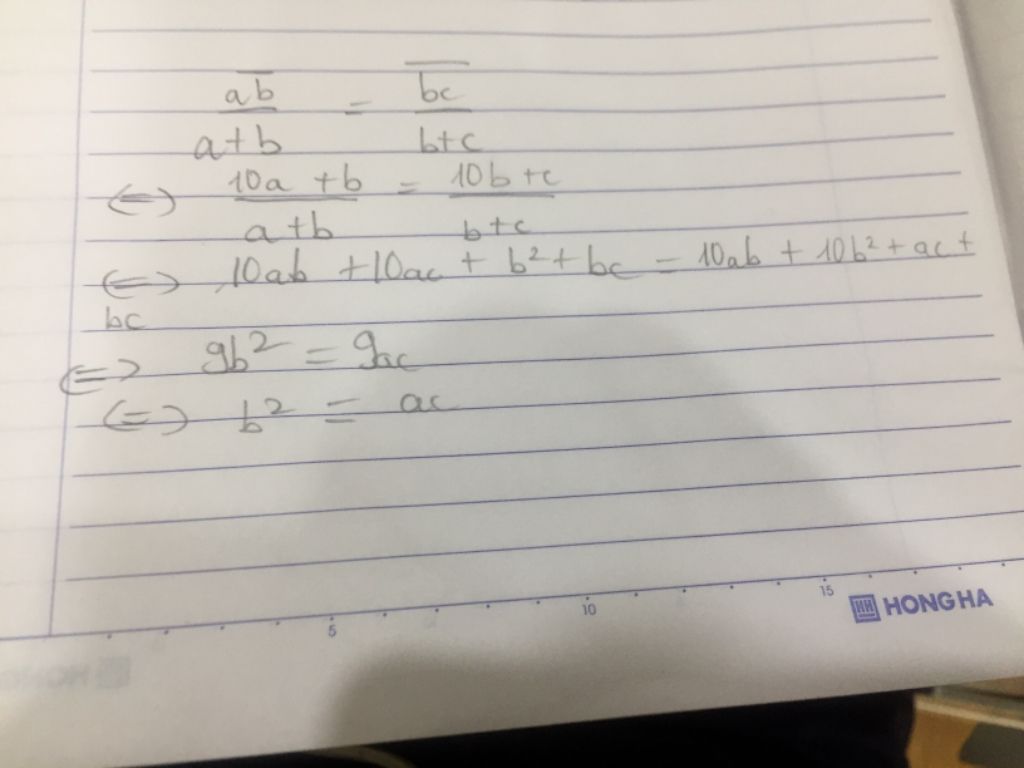 ab/(a+b) = bc/(b+c)
<=> (10a + b)/(a + b) = (10b + c)/(b + c)
<=> 10ab + 10ac + b² + bc = 10ab + 10b² + ac +
bc
<=> 9b² = 9ac
<=> b² = ac
5 10 15
HONG HA